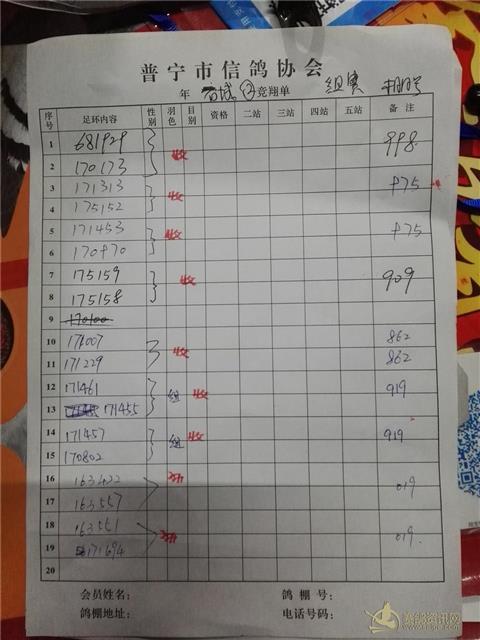 普宁市信鸽协会
年 竞翔单 组
序号 足环内容 性别 羽色 目别 资格 二站 三站 四站 五站 备注
1 681929 998
2 170173 收
3 171313 875
4 175152 收
5 171453 收 875
6 170870
7 175159 收 909
8 175158
9 170100
10 171007 862
11 171229 收 862
12 171461 组 收 919
13 171455
14 171457 组 收 919
15 170802
16 163422 收 019
17 163557
18 163561 收 019
19 171694
20
会员姓名: 鸽棚号:
鸽棚地址: 电话号码: